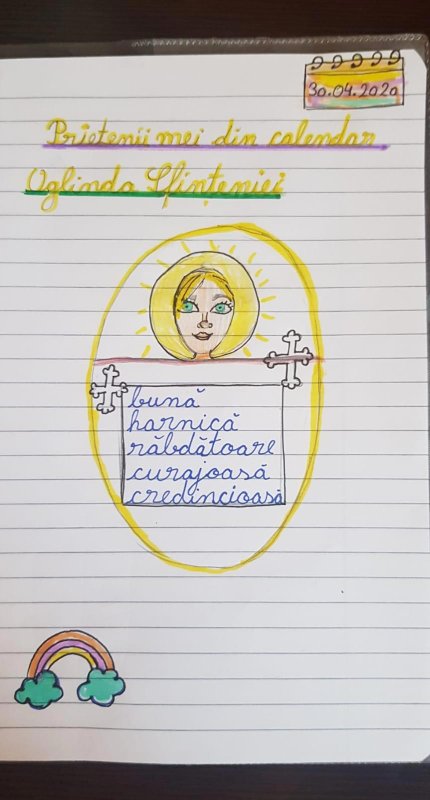 30.04.2020
Prietenii mei din calendar
Oglinda Sfințeniei
bună
harnică
răbdătoare
curajoasă
credincioasă